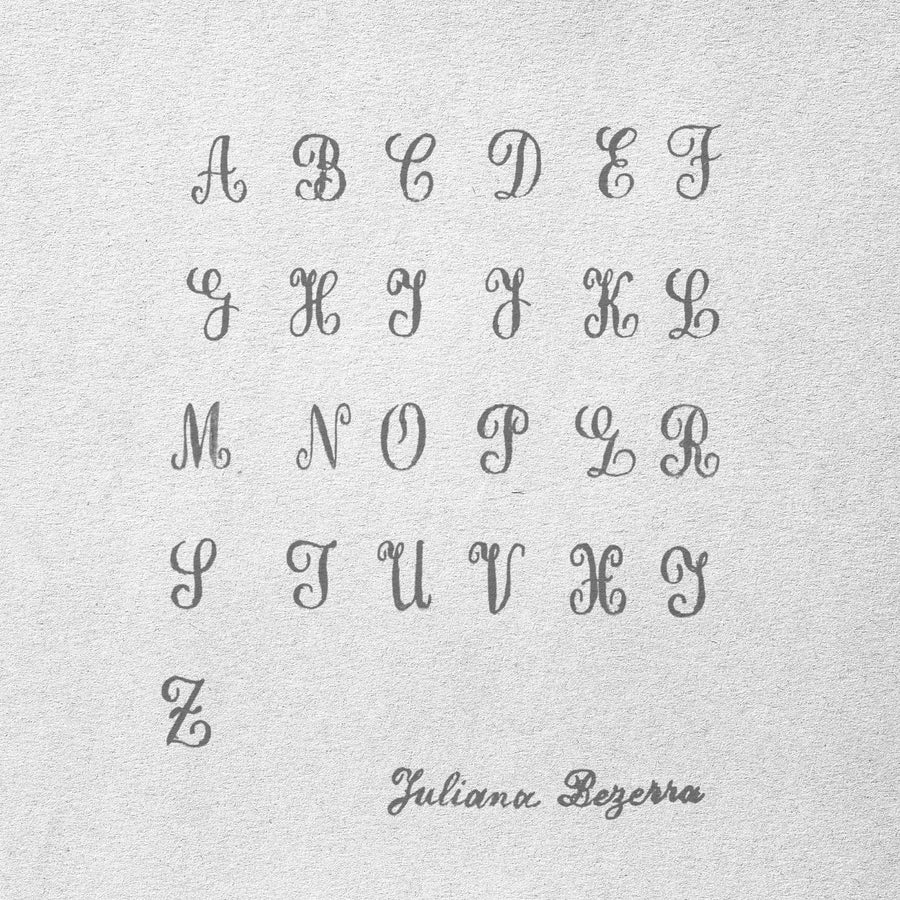 A B C D E F
G H I J K L
M N O P Q R
S T U V X Y
Z
Juliana Bezerra